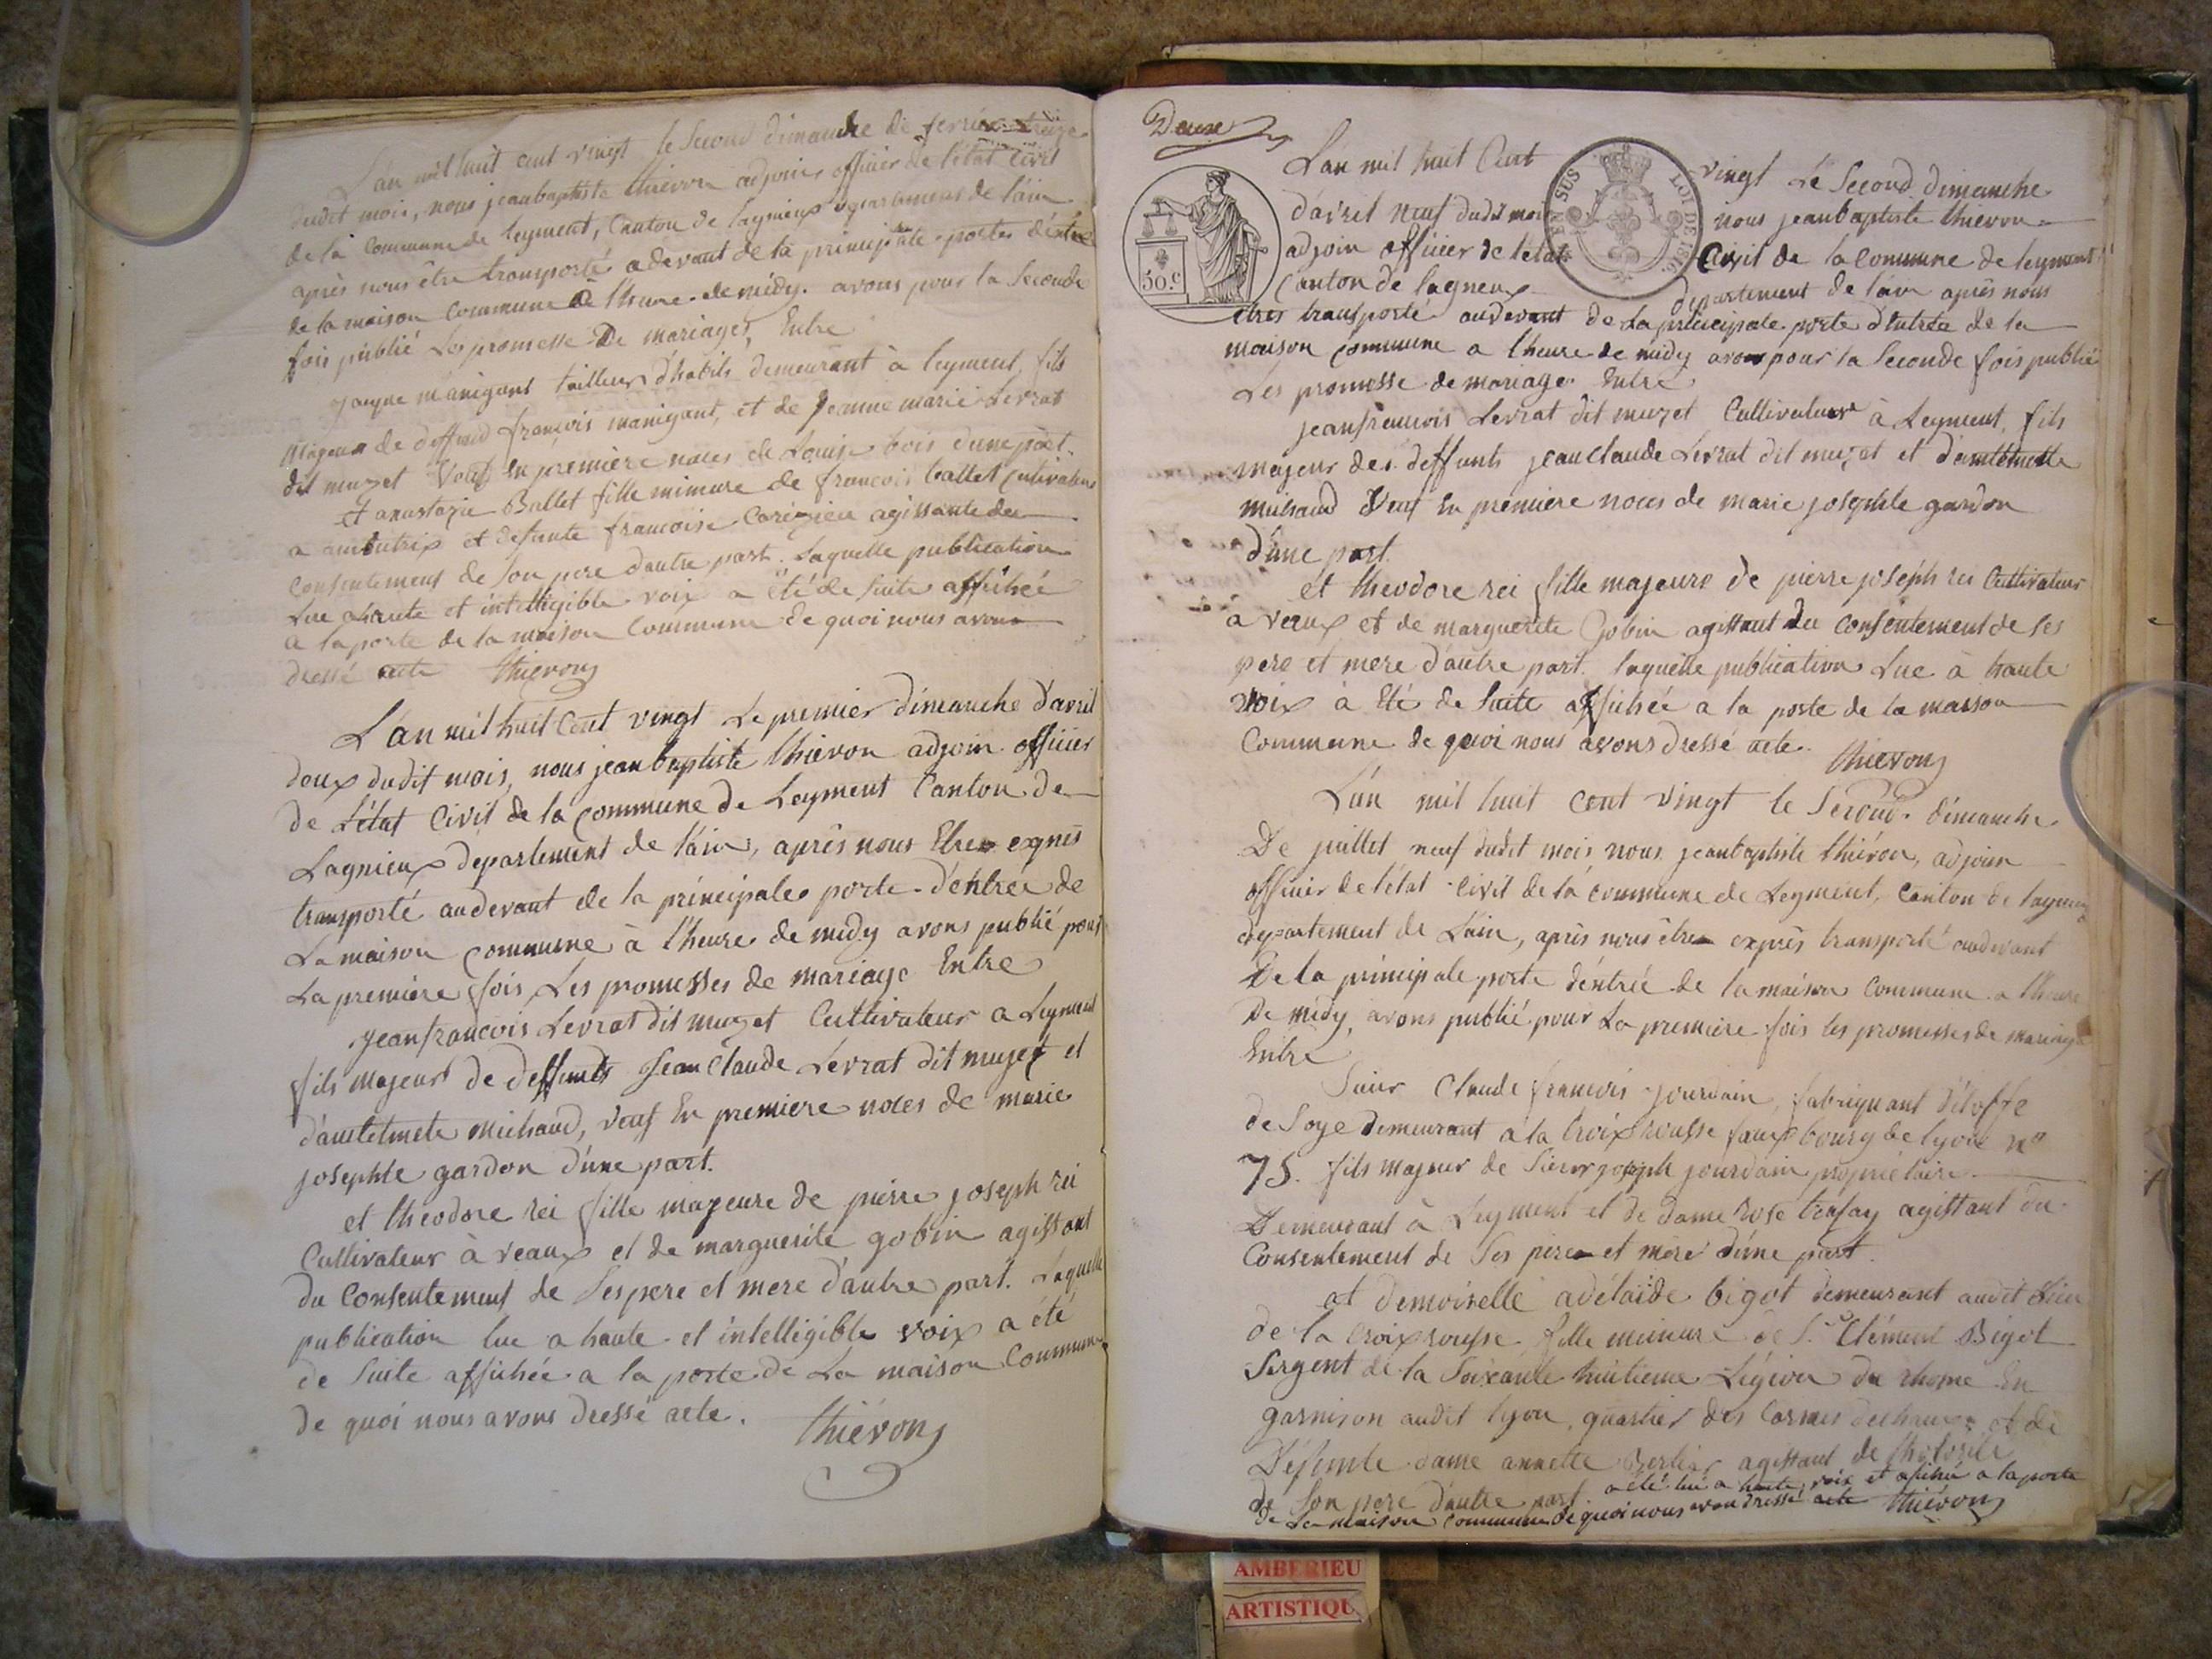 L'an mil huit cent vingt le second dimanche de fevrier treize
dudit mois, nous jeanbaptiste thiévon adjoin officier de l'état civil
de la commune de leyment, Canton de lagnieux departement de l'ain
après nous être transporté adevant de la principale porte d'entrée
de la maison commune à l'heure de midy. avons pour la seconde
fois publié les promesse De mariages, Entre
manigant tailleur d'habits demeurant à leyment, fils
majeur de deffund françois manigant, et de jeanne marie Levrat
dit muzet Veuf en première noces de Louise bois d'une part.
et anastazie Ballet fille mineure de francois ballet Cultivateur
a ambutrix et defunte francoise agissante du
consentement de son pere d'autre part. Laquelle publication
Lue a haute et intelligible voix a été de suite affichée
a la porte de la maison commune de quoi nous avons
dressé acte thiévon
L'an mil huit Cent vingt Le premier dimanche d'avril
deux dudit mois, nous jeanbaptiste thiévon adjoin officier
de L'état Civil de la commune de Leyment Canton de
Lagnieux departement de l'ain, après nous Etre exprès
transporté audevant de la principale porte d'entrée de
La maison commune à l'heure de midy avons publié pour
La première fois Les promesses de mariage Entre
jeanfrancois Levrat dit muzet Cultivateur a Leyment
fils majeur de deffunts Jean Claude Levrat dit muzet et
d'antelmete michaud, veuf En premiere noces de marie
josephte gardon d'une part.
et theodore rei fille majeure de pierre joseph rei
Cultivateur à veaux et de marguerite gobin agissant
du Consentement de Ses pere et mere d'autre part. Laquelle
publication lue a haute et intelligible voix a été
de Suite affichée a la porte de La maison Commune
de quoi nous avons dressé acte.
thiévon
Deuxe
L'an mil huit Cent vingt Le Second dimanche
d'avril neuf dudit mois nous jeanbaptiste thiévon
adjoin officier de l'état Civil de la commune de leyment
Canton de lagneux departement de l'ain après nous
50.c
SUS
LOI DE 1816.
etres transporté audevant de La principale porte d'entrée de la
maison commune a l'heure de midy avons pour la Seconde fois publié
Les promesse de mariage Entre
jeanfrancois Levrat dit muzet Cultivateur à Leyment, fils
majeur des deffunts jean claude Levrat dit muzet et d'antelmette
michaud Veuf En premiere noces de marie josephte gardon
d'une part.
et theodore rei fille majeure de pierre joseph rei Cultivateur
à veaux et de marguerite Gobin agissant du consentement de ses
pere et mere d'autre part. laquelle publication Lue à haute
voix à Eté de Suite affichée a la porte de la maison
Commune de quoi nous avons dressé acte.
thiévon
L'an mil huit cent vingt le Second dimanche
De juillet neuf dudit mois nous jeanbaptiste thiévon, adjoin
officier de l'état Civil de la commune de Leyment, Canton de lagnieux
departement de L'ain, après nous être exprès transporté audevant
De la principale porte d'entrée de la maison commune a l'heure
De midy, avons publié pour La premiere fois les promesses de mariage
Entre
Sieur Claude françois jourdain, fabriquant d'étoffe
de Soye demeurant à la Croix rousse fauxbourg de lyon no
75. fils majeur de Sieur joseph jourdain propriétaire
Demeurant à Leyment et de dame rose agissant du
Consentement de Ses pere et mère d'une part.
et demoiselle adélaïde bigot demeurant audit lieu
de la Croix rousse fille mineure de S.r Clément Bigot
Sergent de la Soixante huitieme Légion du rhone En
garnison audit lyon, quartier des Carmes dechaux et de
Défunte dame annette agissant de l'hotorité
de Son pere d'autre part a été lue a haute voix et afichée a la porte
de La maison commune de quoi nous avon dressé acte thiévon
AMBERIEU
ARTISTIQU